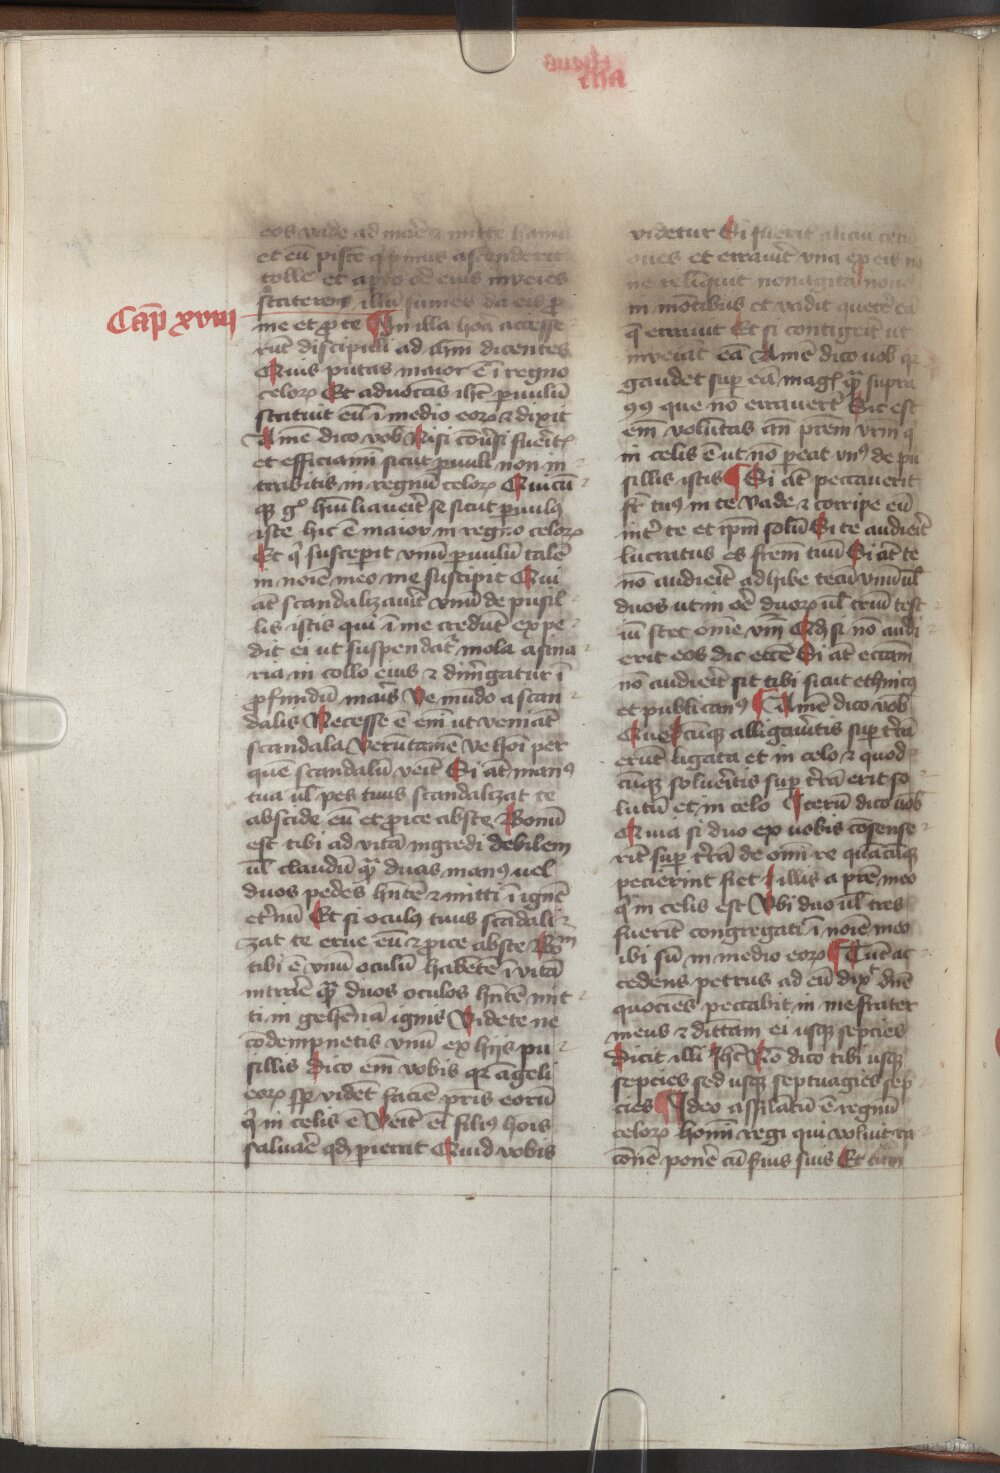 Cap xviii
eos vade ad marē ⁊ mitte hamū
et eū piscē q̇ pⁱmus ascenderit
tolle et apto ōe eius inveies
staterem illū sumes da eis ꝓ
me et ꝓ te In illa hora accesse
rūt discipuli ad ihm dicentes
Quis putas maior ē ī regno
celoꝝ Et advocās ihc̄ pvulū
statuit eū ī medio eoꝝ ⁊ dixit
Amē dico vob Nisi cōūsi fueītꝭ
et efficiamī sicut pvuli non in
trabitis in regnū celoꝝ Quicū
qꝫ gͦ huīliaveīt se sicut pvulꝰ
iste hic ē maior in regno celoꝝ
Et qⁱ susceperit vnū pvulū talē
in noīe meo me suscipit Qui
āt scandalizavīt vnū de pusil
lis istis qui ī me credūt expe
dit ei ut suspendatᷣ mola asina
ria in collo eius ⁊ dim̄gatur ī
ꝓfundū maīs Ve mūdo a scan
dalis Necesse ē em̄ ut veniāt
scandala Verūtamē ve hoī per
quē scandalū veīt Si āt manꝰ
tua ul̄ pes tuus scandalizat te
abscide eū et ꝓice abs te Bonū
est tibi ad vitā ingredi debilem
ul̄ claudū qᷓ duas manꝰ uel
duos pedes hn̄tē ⁊ mitti ī ignē
et̄nū Et si oculꝰ tuus scādali
zat te erue eū ⁊ pice abs te Boᵐ
tibi ē vnū oculū habētē ī vitā
intrāe qᷓ duos oculos hn̄tē mit
ti in gehēnā ignis Videte ne
cōdempnetis vnū ex hijs pu
sillis Dico em̄ vobis qꝛ āgeli
eoꝝ sp̄ vidēt faciē pris eorū
qⁱ in celis ē Veīt eī filiꝰ hoīs
salvāe qḋ pierat Quid vobis
videtur Si fuerit alicui centū
oues et erraveīt vna ex eis nō
ne reliquit nonaginta nove
in mōtibus et vadit querē eā
q̄ erravit Et si contigerit ut
inveiat eā Amē dico vob qꝛ
gaudet sup eā magꝭ qᷓ supra
99 que nō erraverūt Sic est
em̄ volūtas an̄ prēm vrm̄ qⁱ
in celis ē ut nō peat vnꝰ de pu
sillis istis Si āt peccaverit
fr̄ tuꝰ in te Vade ⁊ corripe eū
int̄ te et ip̄m solū Si te audieīt
lucratus es fr̄em tuū Si āt te
nō audieīt adhibe tecū vnū ul̄
duos ut in ōe duoꝝ ul̄ triū test
iū stet om̄e vm̄ Qḋ si nō audi
erit eos dic ecc̄e Si āt ecc̄am
nō audieīt sit tibi sicut ethnicꝰ
et publicanꝰ Amē dico vob
Quecūqꝫ alligav̄itis sup t̄rā
erūt ligata et in celo ⁊ quod
cūqꝫ solueītis sup t̄rā erit so
lutū et in celo Iterū dico vob
Quia si duo ex uobis cōsense
rīt sup t̄rā de om̄i re quācūqꝫ
pecierint fiet illis a pr̄e meo
qⁱ in celis est Vbi duo ul̄ tres
fuerīt congregati ī noīe meo
ibi sū in medio eoꝝ Tūc ac
cedens petrus ad eū dixᵗ dn̄e
quociēs peccabit in me frater
meus ⁊ dittam ei usqꝫ sepcies
Dicit illi Ihc̄ Nō dico tibi usqꝫ
sepcies sed usqꝫ septuagies sep
cies Ideo assilatū ē regnū
celoꝝ homī regi qui voluit ra
conē ponē cū s̄uis suis Et cum